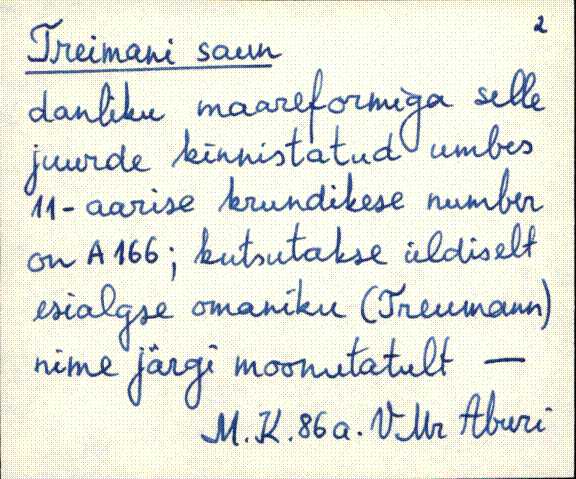 2
Treimani saun
danliku maareformiga selle
juurde kinnistatud umbes
11-aarise krundikese number
on A 166; kutsutakse üldiselt
esialgse omaniku (Treumann)
nime järgi moonutatult —
M.K. 86 a. VMr Aburi